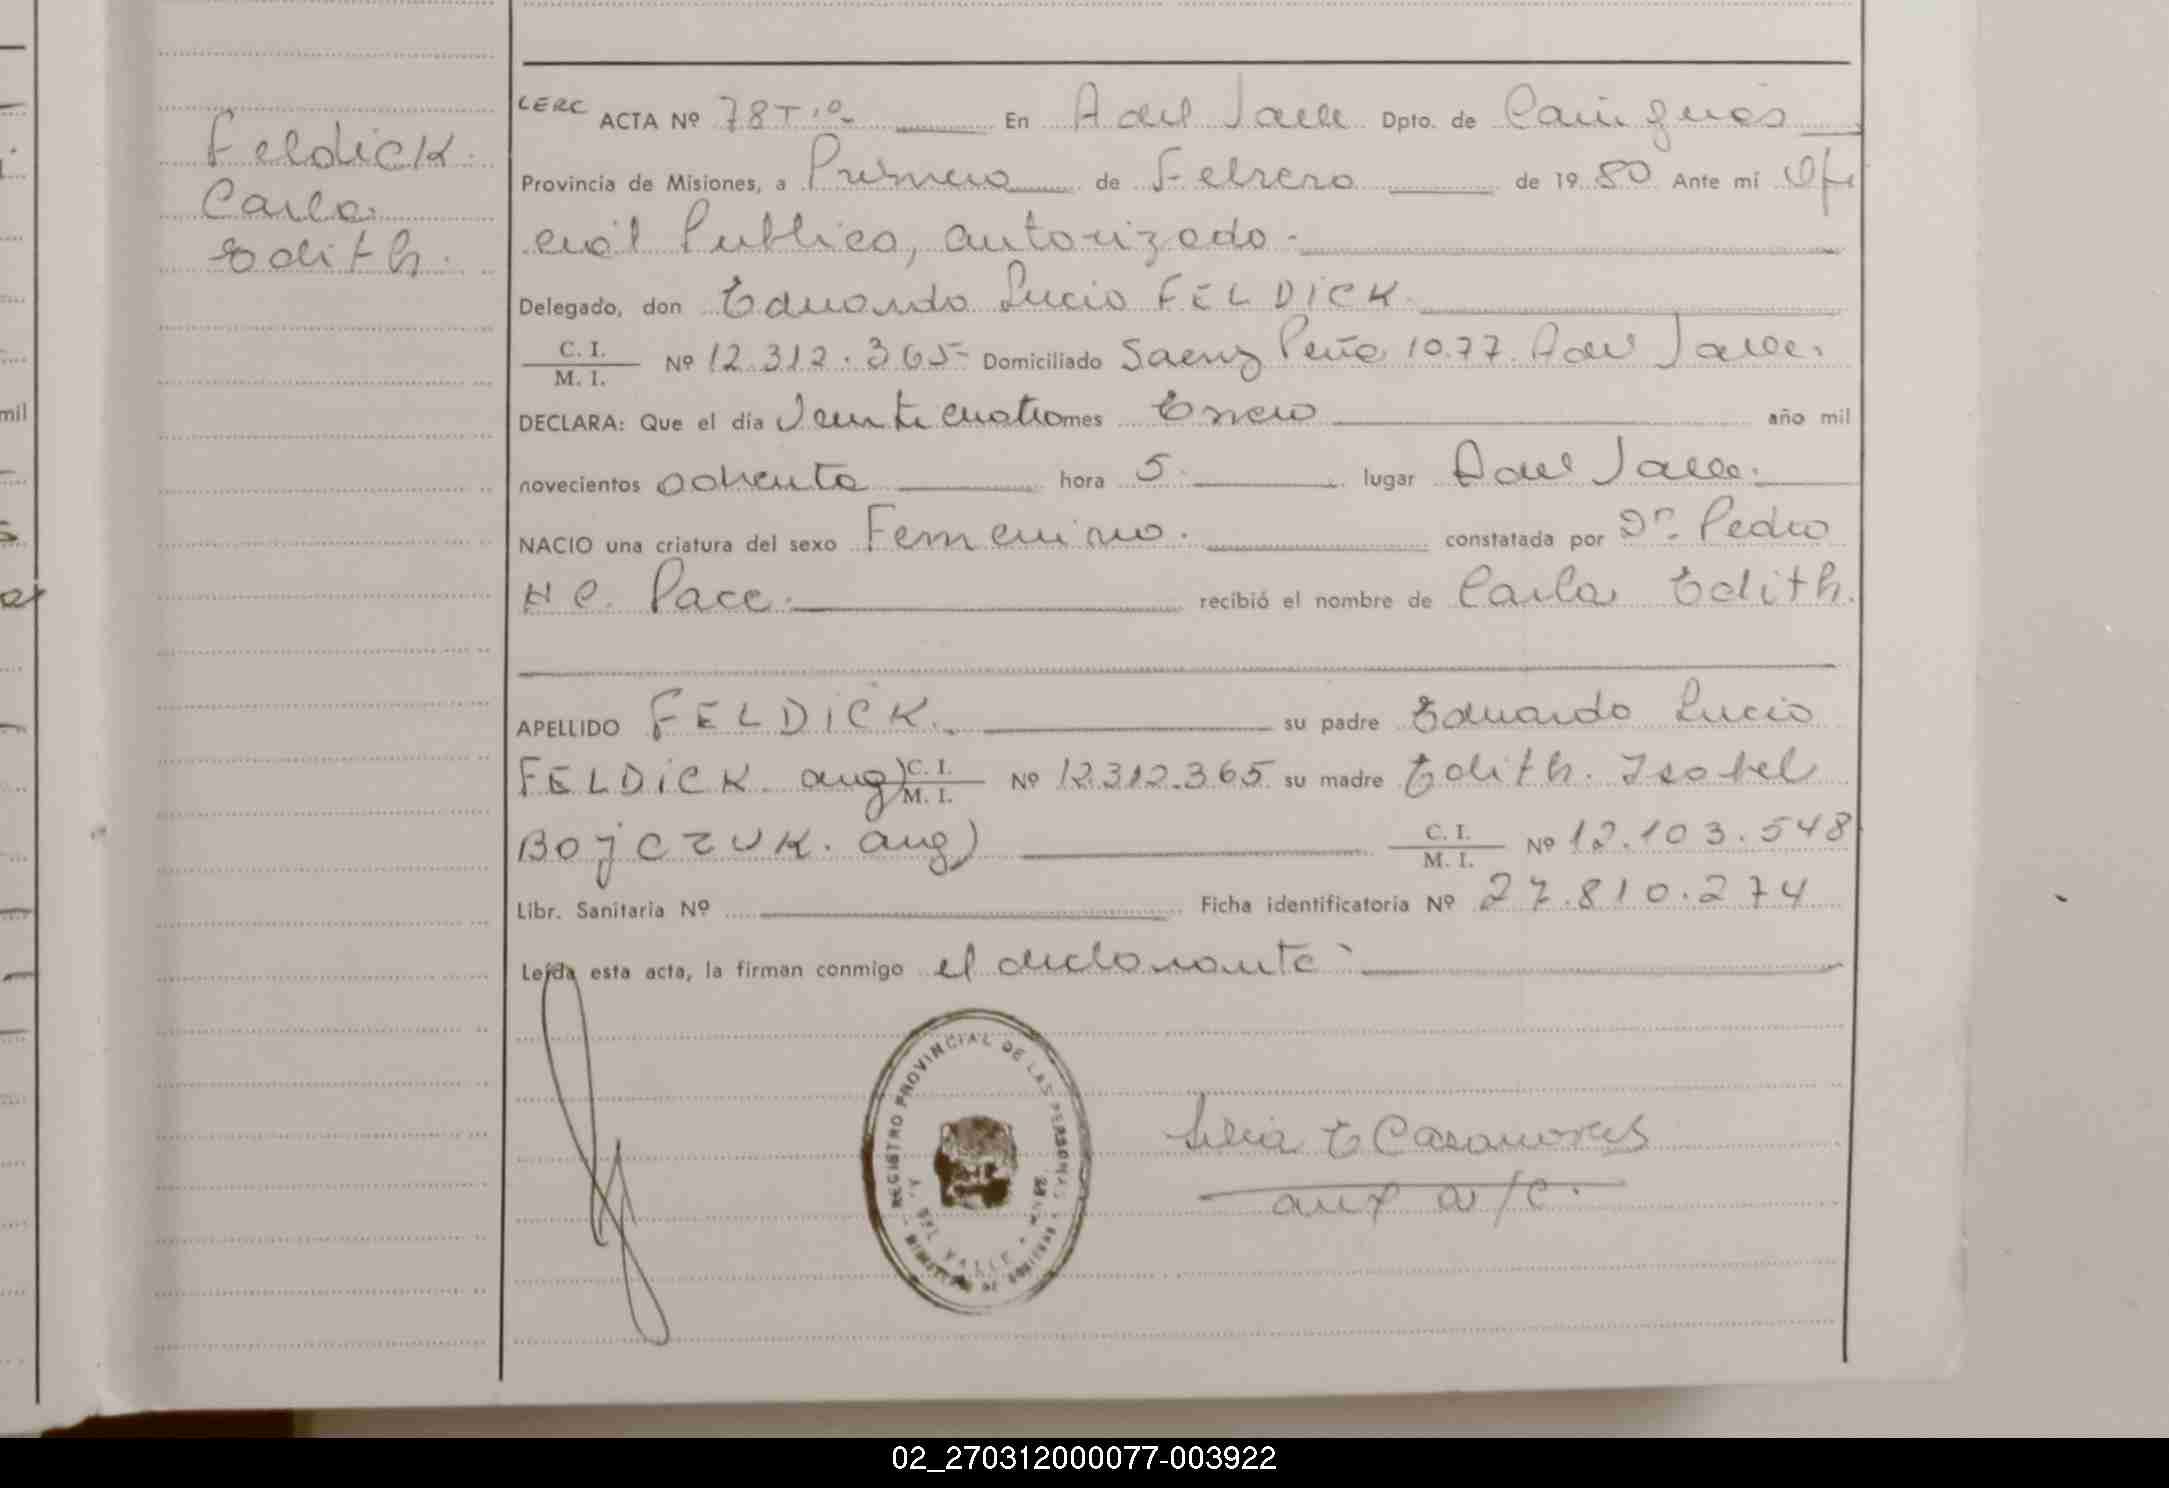 Feldick
Carla
Edith.
LERC ACTA Nº 78 Tº En A del Valle Dpto. de Cainguás
Provincia de Misiones, a Primero de Febrero de 1980 Ante mí Ofi
cial Publico, autorizado.
Delegado, don Eduardo Lucio FELDICK
C. I.
M. I. Nº 12.312.365 Domiciliado Saenz Peña 1077. A del Valle.
DECLARA: Que el día Veinticuatro mes Enero año mil
novecientos ochenta hora 5 lugar A del Valle.
NACIO una criatura del sexo Femenino. constatada por Dr. Pedro
H C. Pace. recibió el nombre de Carla Edith.
APELLIDO FELDICK. su padre Eduardo Lucio
FELDICK arg) C. I.
M. I. Nº 12.312.365 su madre Edith. Isabel
BOJCZUK. arg) C. I.
M. I. Nº 12.103.548
Libr. Sanitaria Nº Ficha identificatoria Nº 27.810.274
Leída esta acta, la firman conmigo el declarante
REGISTRO PROVINCIAL DE LAS PERSONAS
DEL VALLE
aux a/c.
mil
02_270312000077-003922